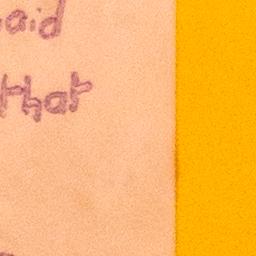 aid
that